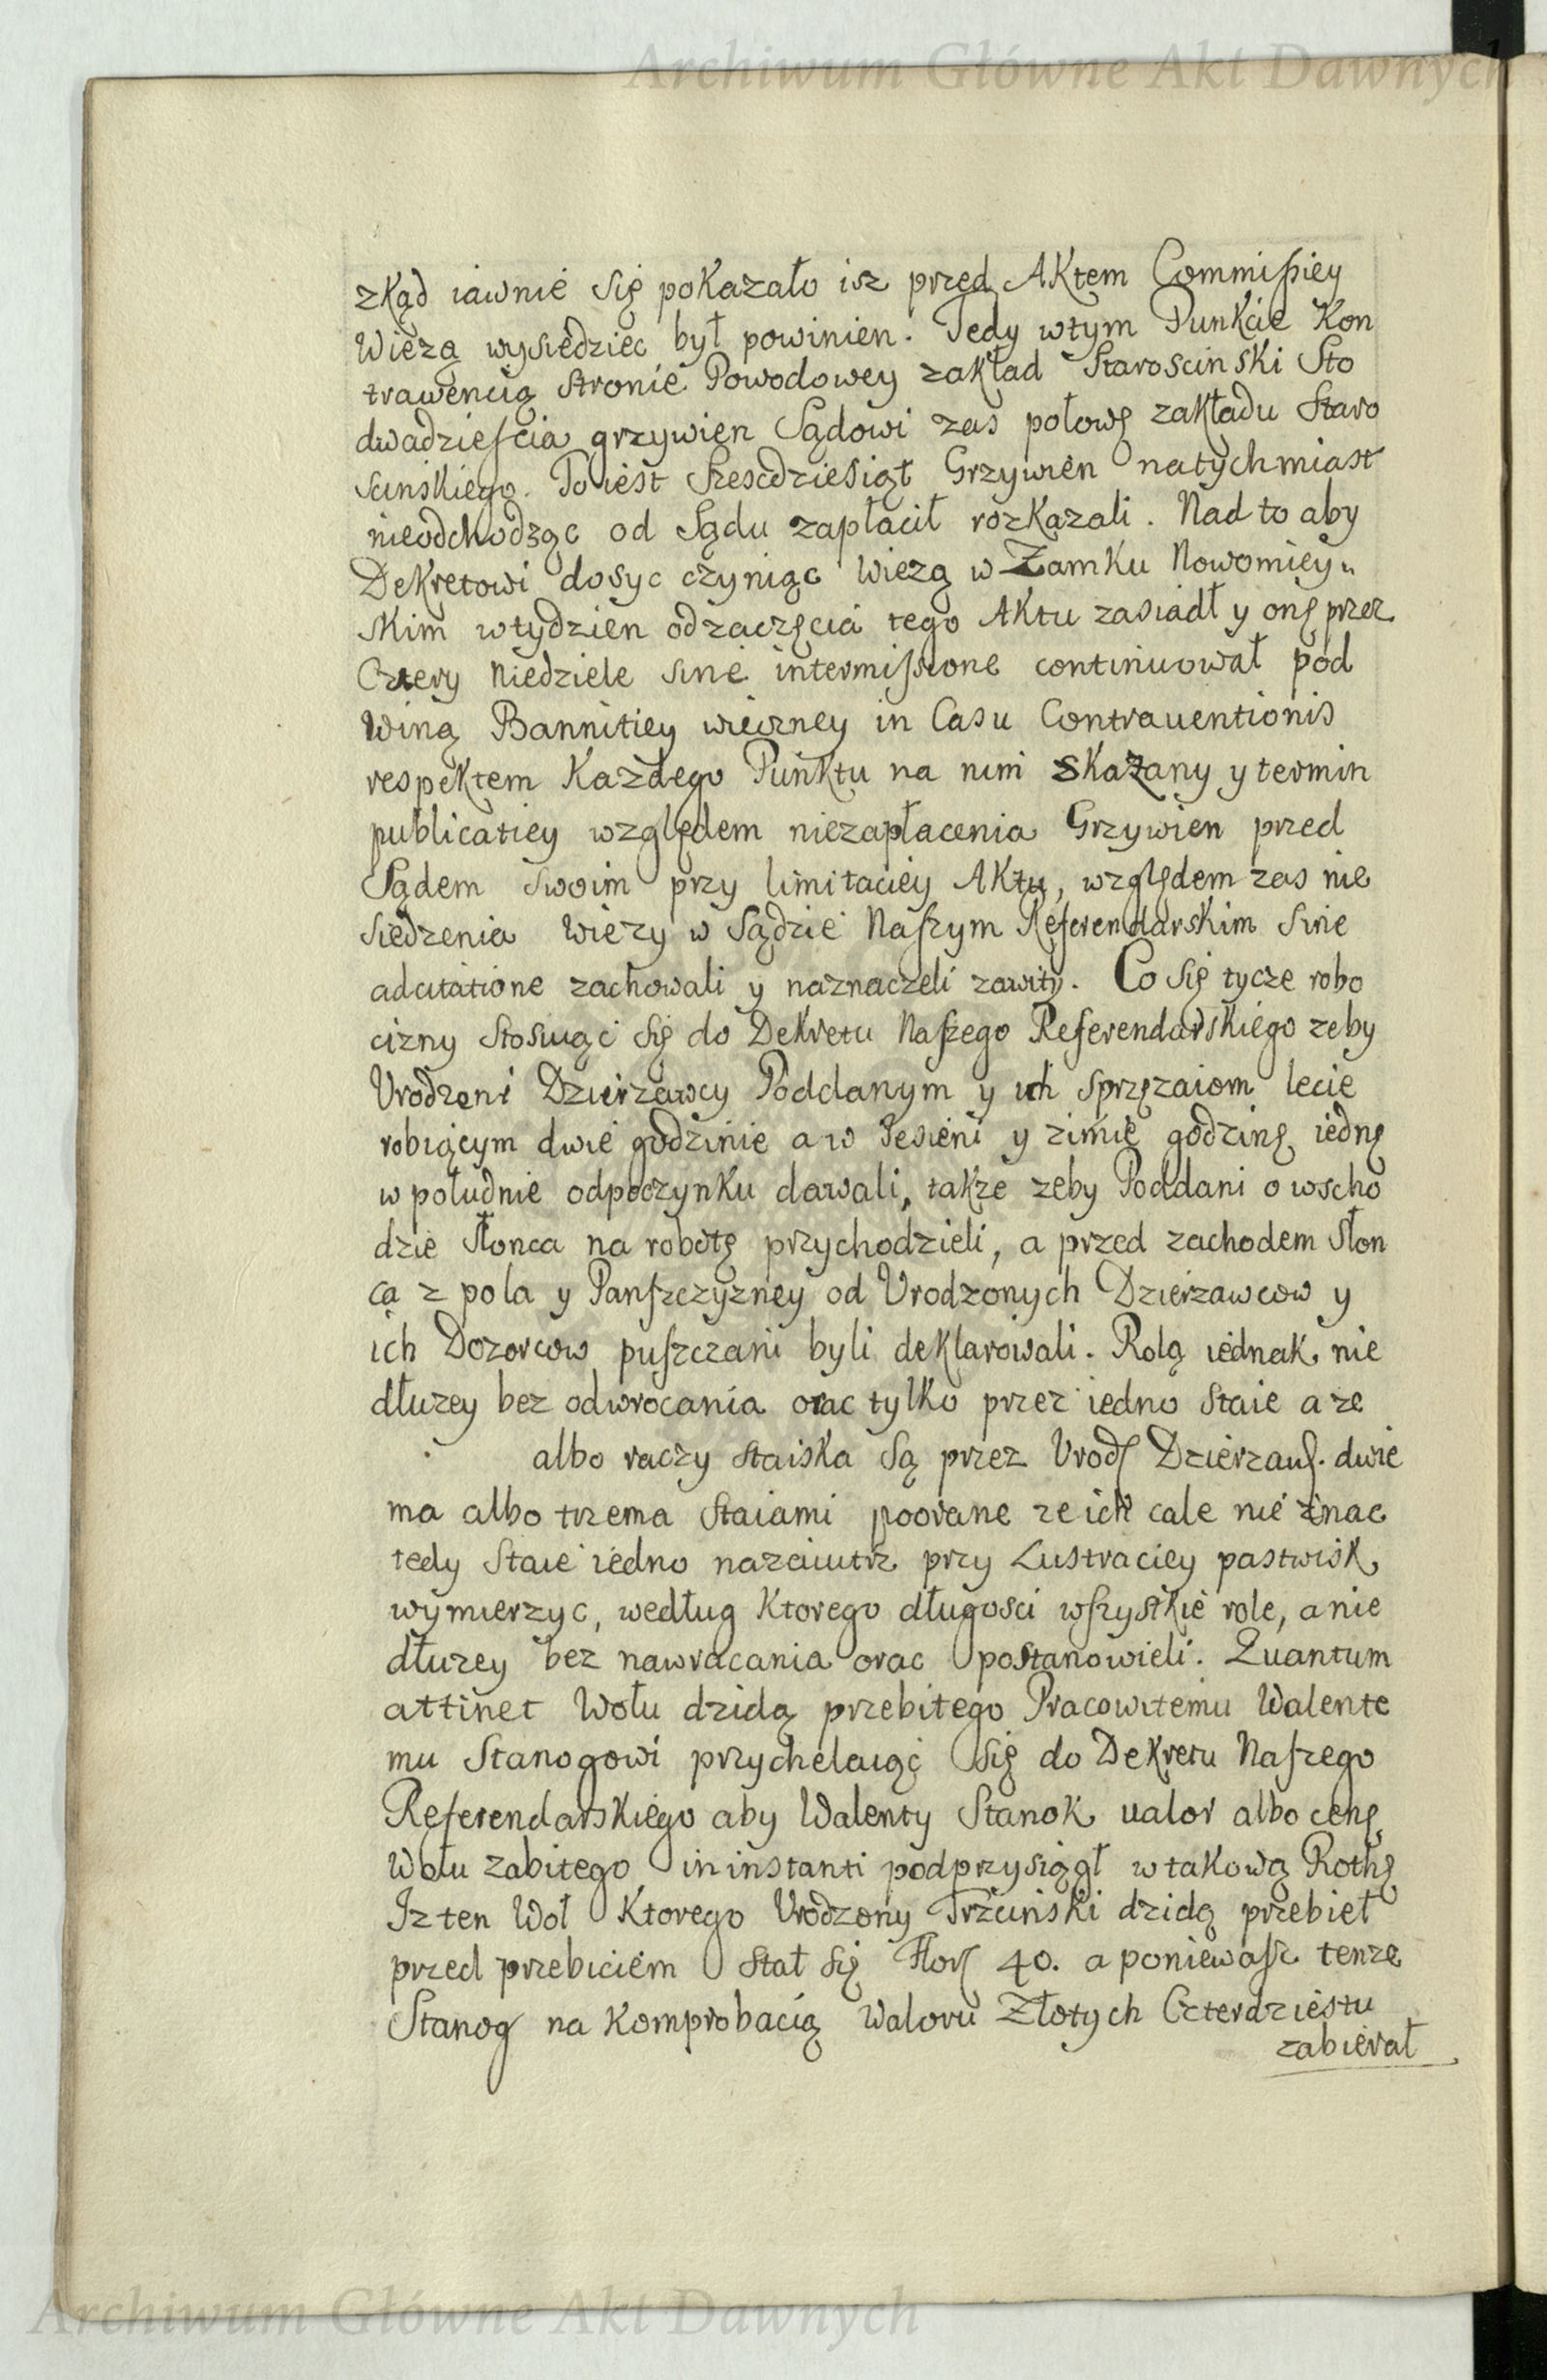 Archiwum Główne Akt Dawnych
zkąd iawnie się pokazało isz przed Aktem Commiſsiey
Wiezą wysiedziec był powinien. Tedy wtym Punkcie Kon
trawencią Stronie Powodowey zakład Staroscinski Sto
dwadzieſcia grzywien Sądowi zas połowę zakładu Staro
scinskiego. To iest Szescdziesiąt Grzywien natychmiast
nieodchodząc od Sądu zapłacił rozkazali. Nad to aby
Dekretowi dosyc czyniąc Wiezą w Zamku Nowomiey„
skim wtydzien odzaczęcia tego Aktu zasiadł y onę przez
Cztery Niedziele sine intermiſsione continuował pod
Winą Bannitiey wieczney in Casu Contrauentionis
respektem Kazdego Punktu na nim skazany y termin
publicatiey względem niezapłacenia Grzywien przed
Sądem Swoim przy limitaciey Aktu, względem zas nie
siedzenia Wiezy w Sądzie Naſzym Referendarskim Sine
adcitatione zachowali y naznaczeli zawity. Co się tycze robo
cizny Stosuiąc się do Dekretu Naſzego Referendarskiego zeby
Urodzeni Dzierzawcy Poddanym y ich Sprzęzaiom lecie
robiącym dwie godzinie a w Jesieni y zimie godzinę iednę
w południe odpoczynku dawali, także zeby Poddani o wscho
dzie Słonca na robotę przychodzieli, a przed zachodem Słon
ca z pola y Panſzczyzney od Urodzonych Dzierzawcow y
ich Dozorcow puſzczani byli deklarowali. Rolą iednak nie
dłuzey bez odwrocania orac tylko przez iedno Staie a ze
albo raczy Staiska Są przez Urodſ Dzierzauſ. dwie
ma albo trzema Staiami poorane ze ich cale nie znac
tedy Staie iedno nazaiutrz przy Lustraciey pastwisk
wymierzyc, według Ktorego długosci wſzystkie role, a nie
dłuzey bez nawracania orac postanowieli. Quantum
attinet Wołu dzidą przebitego Pracowitemu Walente
mu Stanogowi przychelaiąc się do Dekretu Naſzego
Referendarskiego aby Walenty Stanok ualor albo cenę
Wołu zabitego in instanti podprzysiągł w takową Rothę
Iz ten Woł Ktorego Urodzony Trzcinski dzidą przebieł
przed przebiciem Stał się Florſ 40. a poniewaſz tenze
Stanog na Komprobacią Waloru Złotych Czterdziestu
zabierał
Archiwum Główne Akt Dawnych